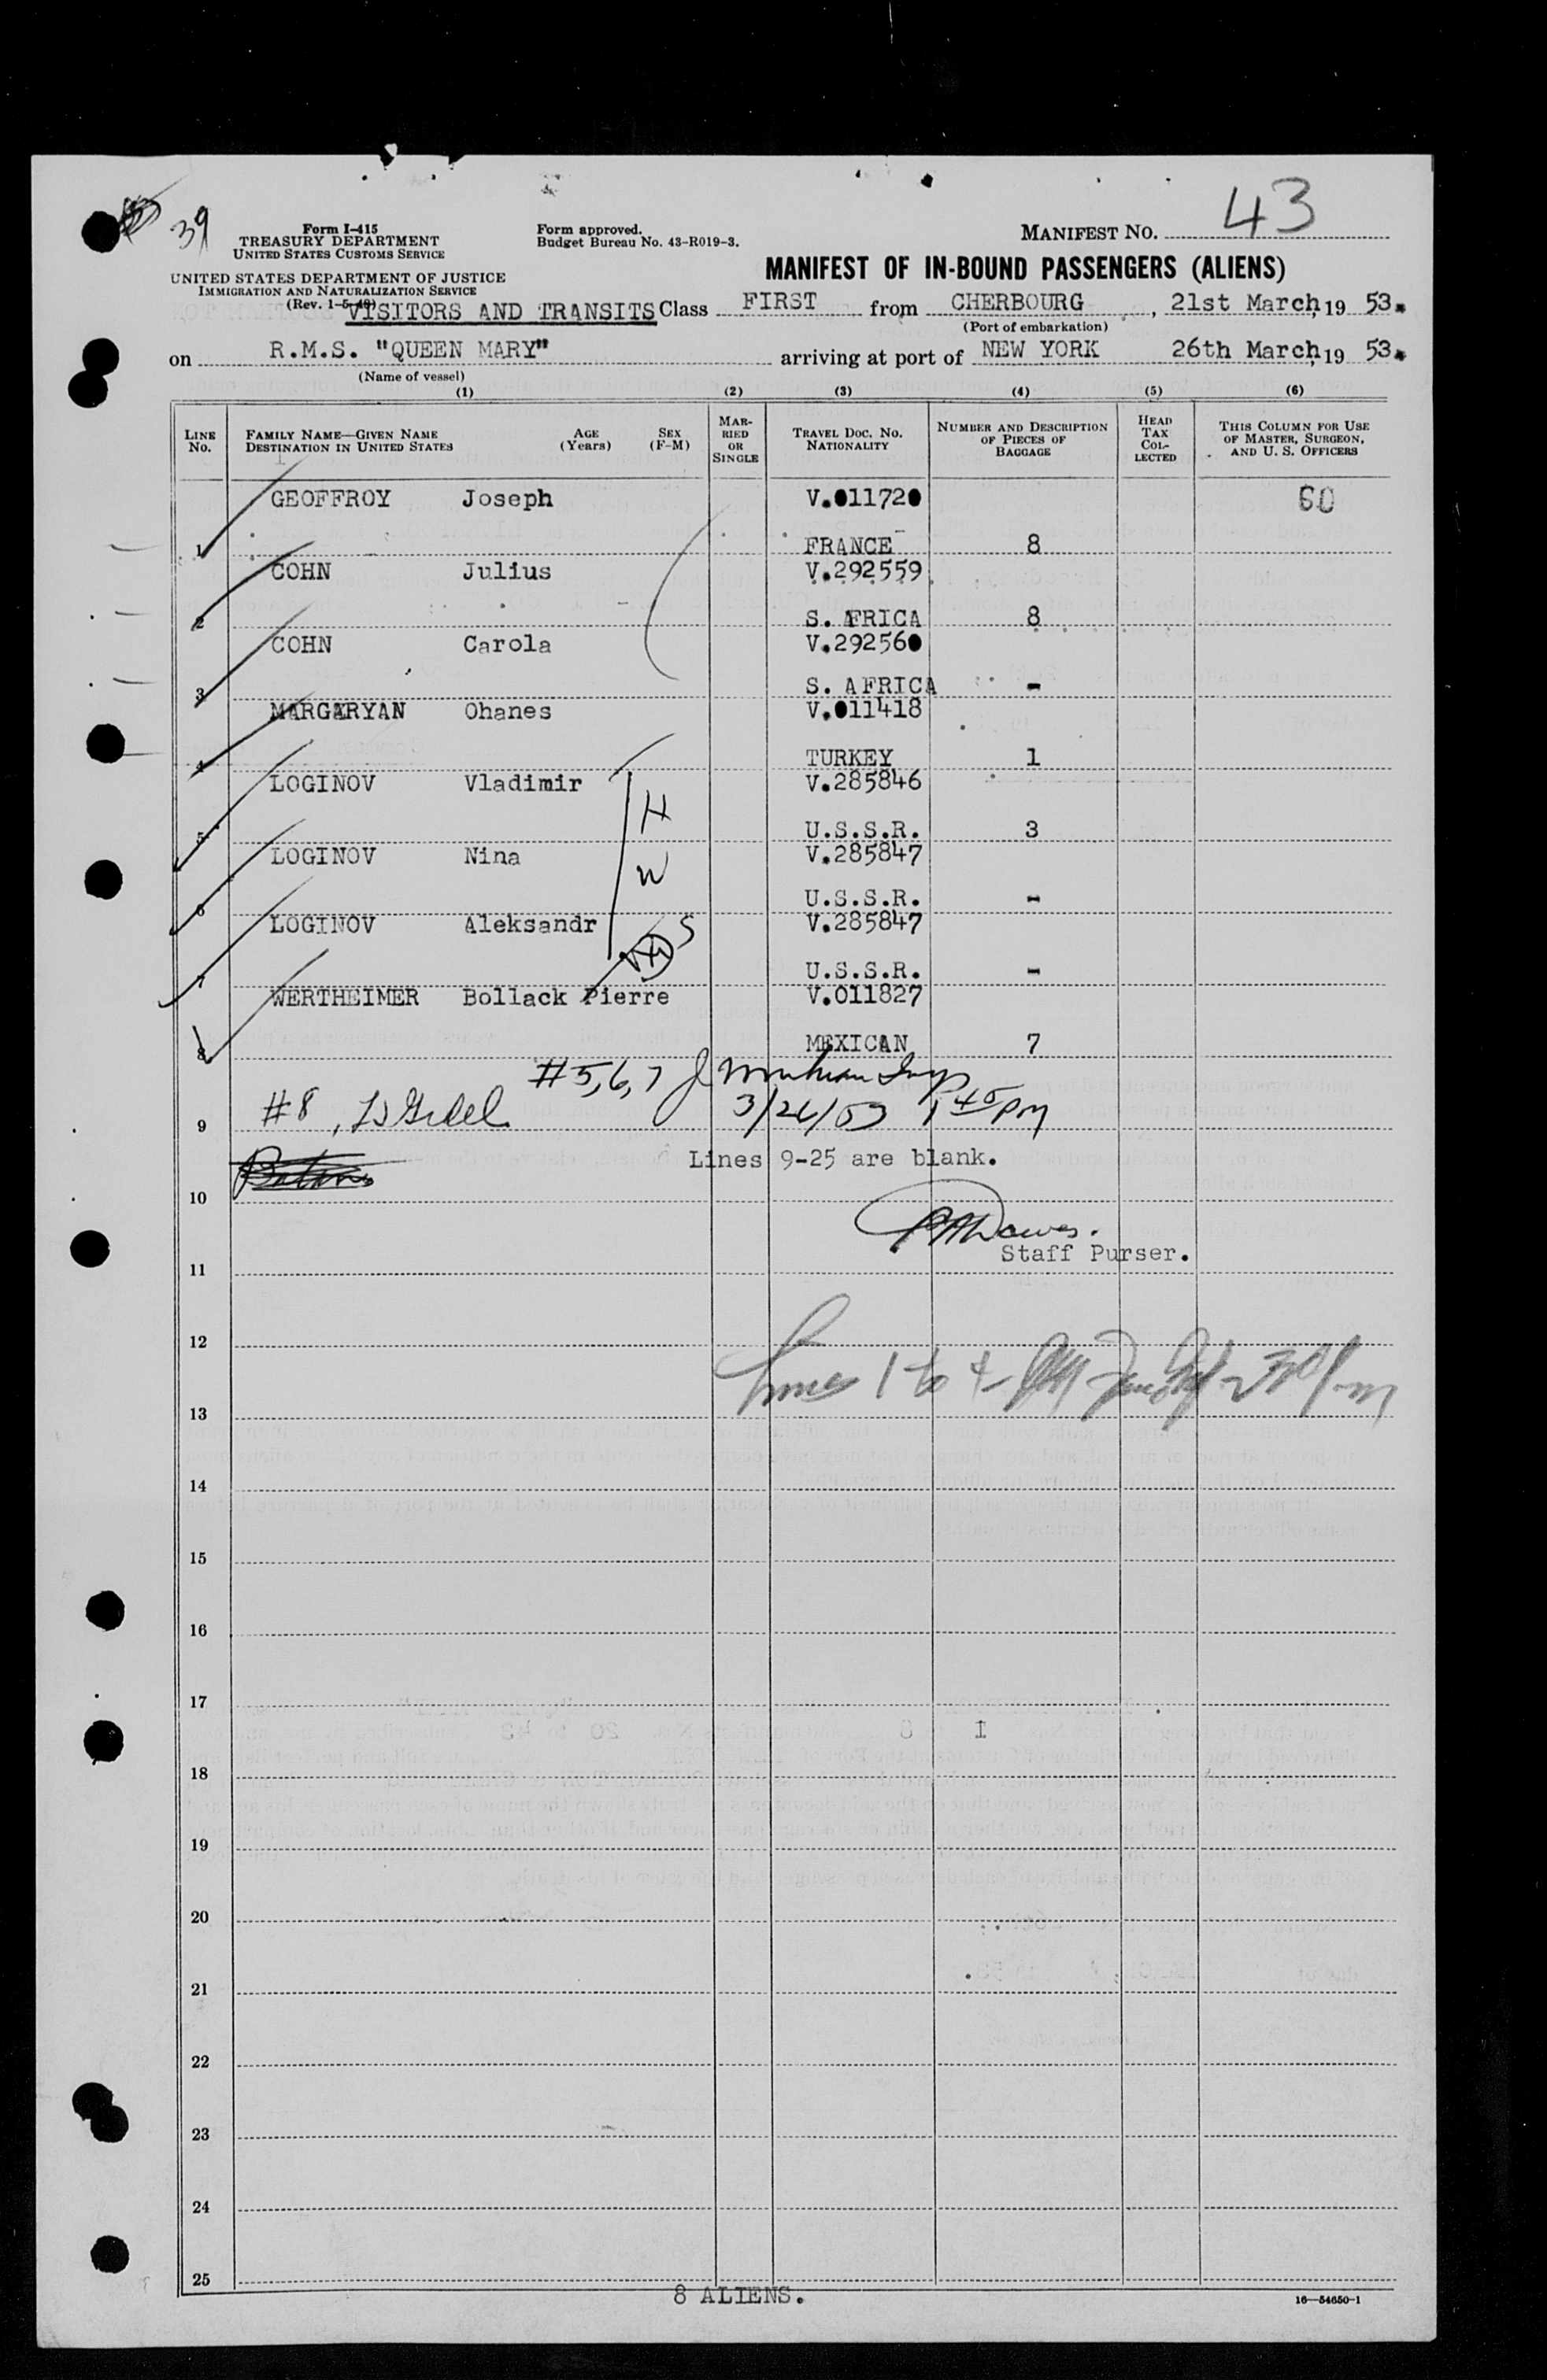 39
43
Form I-415
TREASURY DEPARTMENT
UNITED STATES CUSTOMS SERVICE
Form approved.
Budget Bureau No. 43-R019-3.
MANIFEST NO.
UNITED STATES DEPARTMENT OF JUSTICE
IMMIGRATION AND NATURALIZATION SERVICE
(Rev. 1-5-49)
MANIFEST OF IN-BOUND PASSENGERS (ALIENS)
VISITORS AND TRANSITS Class FIRST from CHERBOURG, 21st March, 19 53.
(Port of embarkation)
on R.M.S. "QUEEN MARY" arriving at port of NEW YORK 26th March, 19 53.
(Name of vessel)
(1) (2) (3) (4) (5) (6)
LINE NO. FAMILY NAME—GIVEN NAME DESTINATION IN UNITED STATES AGE (Years) SEX (F-M) MARRIED OR SINGLE TRAVEL DOC. NO. NATIONALITY NUMBER AND DESCRIPTION OF PIECES OF BAGGAGE HEAD TAX COLLECTED THIS COLUMN FOR USE OF MASTER, SURGEON, AND U. S. OFFICERS
GEOFFROY Joseph V.011720 60
1 FRANCE 8
COHN Julius V.292559
2 S. AFRICA 8
COHN Carola V.292560
3 S. AFRICA -
MARGARYAN Ohanes V.011418
4 TURKEY 1
LOGINOV Vladimir H V.285846
5 U.S.S.R. 3
LOGINOV Nina W V.285847
6 U.S.S.R. -
LOGINOV Aleksandr S V.285847
7 U.S.S.R. -
WERTHEIMER Bollack Pierre V.011827
8 MEXICAN 7
#5,6,7
#8 3/26/53 1 45 PM
9
Lines 9-25 are blank.
10
Staff Purser.
11
12
Lines 1 to 4
13
14
15
16
17
18
19
20
21
22
23
24
25
8 ALIENS.
16—54650-1